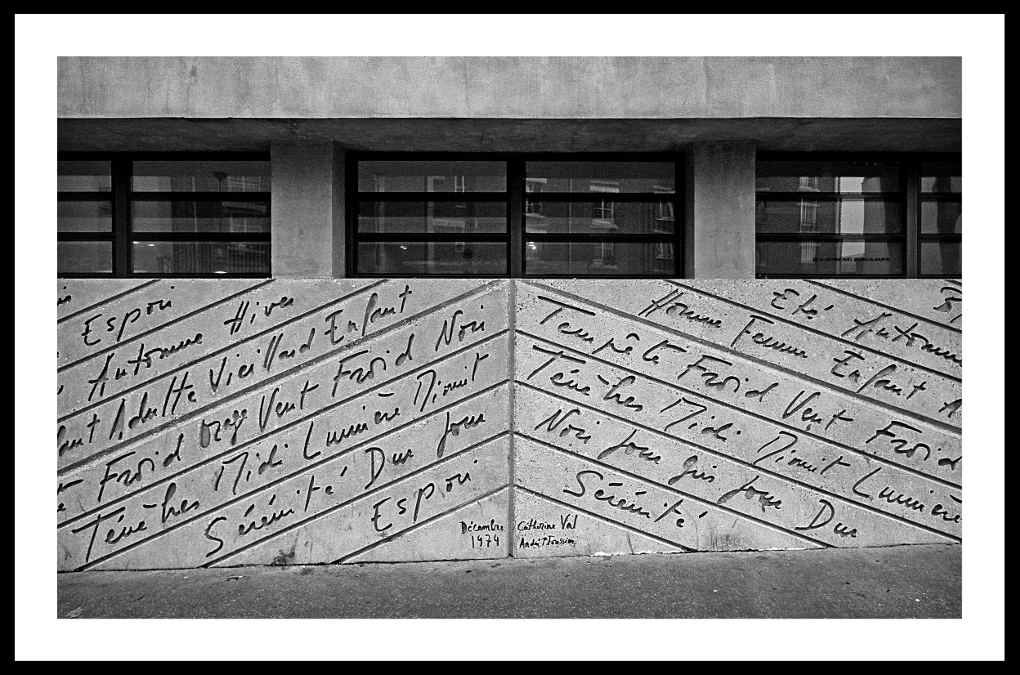 Espoir
Automne Hiver
Adulte Vieillard Enfant
Froid Orage Vent Froid Noir
Ténèbres Midi Lumière Minuit
Sérénité Dur Jour
Espoir
Décembre
1974
Eté Automne
Homme Femme Enfant A
Tempête Froid Vent Froid
Ténèbres Midi Minuit Lumière
Noir Jour Gris Jour Dur
Sérénité
Catherine Val